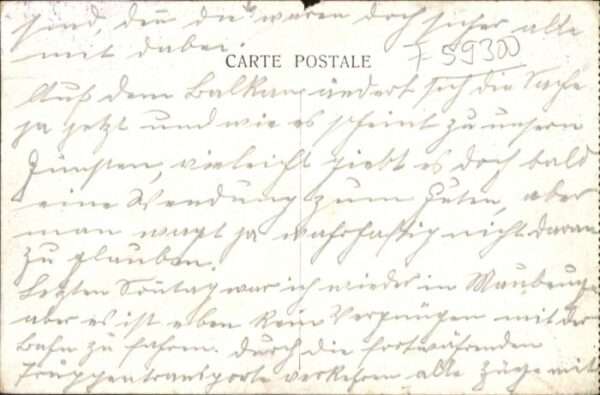 sind, denn die waren doch sicher alle
mit dabei.
CARTE POSTALE
F 59300
Auf dem Balkan ändert sich die Sache
ja jetzt und wie es scheint zu unsern
Gunsten, vielleicht giebt es doch bald
eine Wendung zum Guten, aber
man wagt ja wahrhaftig nicht daran
zu glauben.
Letzten Sonntag war ich wieder in Maubeuge
aber es ist eben kein Vergnügen mit der
Bahn zu fahren. Durch die fortwährenden
Truppentransporte verkehren alle Züge mit